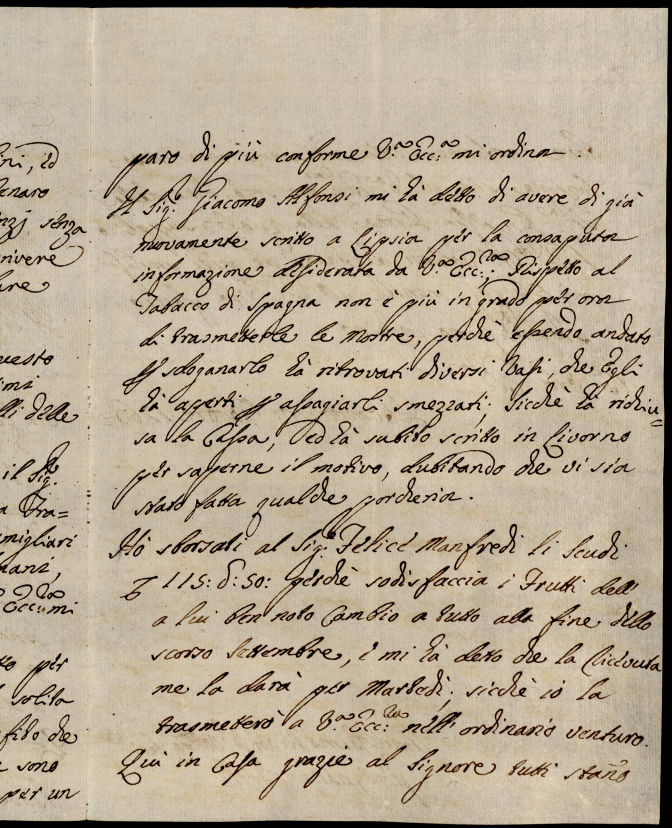 ini, ed
enaro
nzj senza
rivere
are
uesto
imi
lli delle
il Sig.
a Tra=
amigliari
nani,
Ecc:mi
to per
solita
a fido che
e sono
per un
paro di più conforme V.ª Ecc:ª mi ordina.
Il Sig.ᵉ Giacomo Alfonsi mi hà detto di avere di già
novamente scritto a Lipsia per la consaputa
informazione desiderata da V.ª Ecc:ᶻᵃ; Rispetto al
Tabacco di Spagna non è più in grado per ora
di trasmetterle le mostre, perchè essendo andato
p sdoganarlo hà ritrovati diversi Vasi, che Egli
hà aperti p assagiarli smezzati; sicchè hà richiu=
sa la Cassa, ed hà subito scritto in Livorno
per saperne il motivo, dubitando che vi sia
stato fatta qualche porcheria.
Hò sborsati al Sig.ᵉ Felice Manfredi li Scudi
115: d: 50: perchè sodisfaccia i Frutti dell
a lui ben noto Cambio a tutto alla fine dello
scorso Settembre, e mi hà detto che la Riceputa
me la darà per Martedì; sicchè io la
trasmetterò a V.ª Ecc:ᶻᵃ nell' ordinario venturo.
Quì in Casa grazie al Signore tutti stano